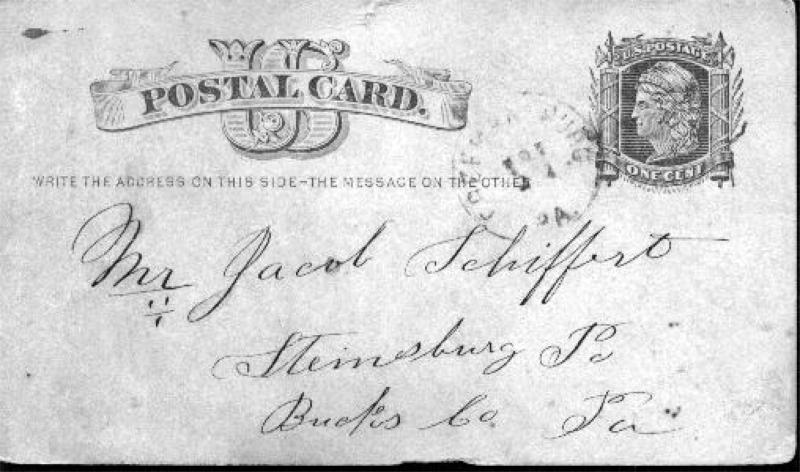 U.S. POSTAGE
US
POSTAL CARD.
ONE CENT
WRITE THE ADDRESS ON THIS SIDE-THE MESSAGE ON THE OTHER
PA.
Mr Jacob Schiffert
Steinsburg Po
Bucks Co Pa